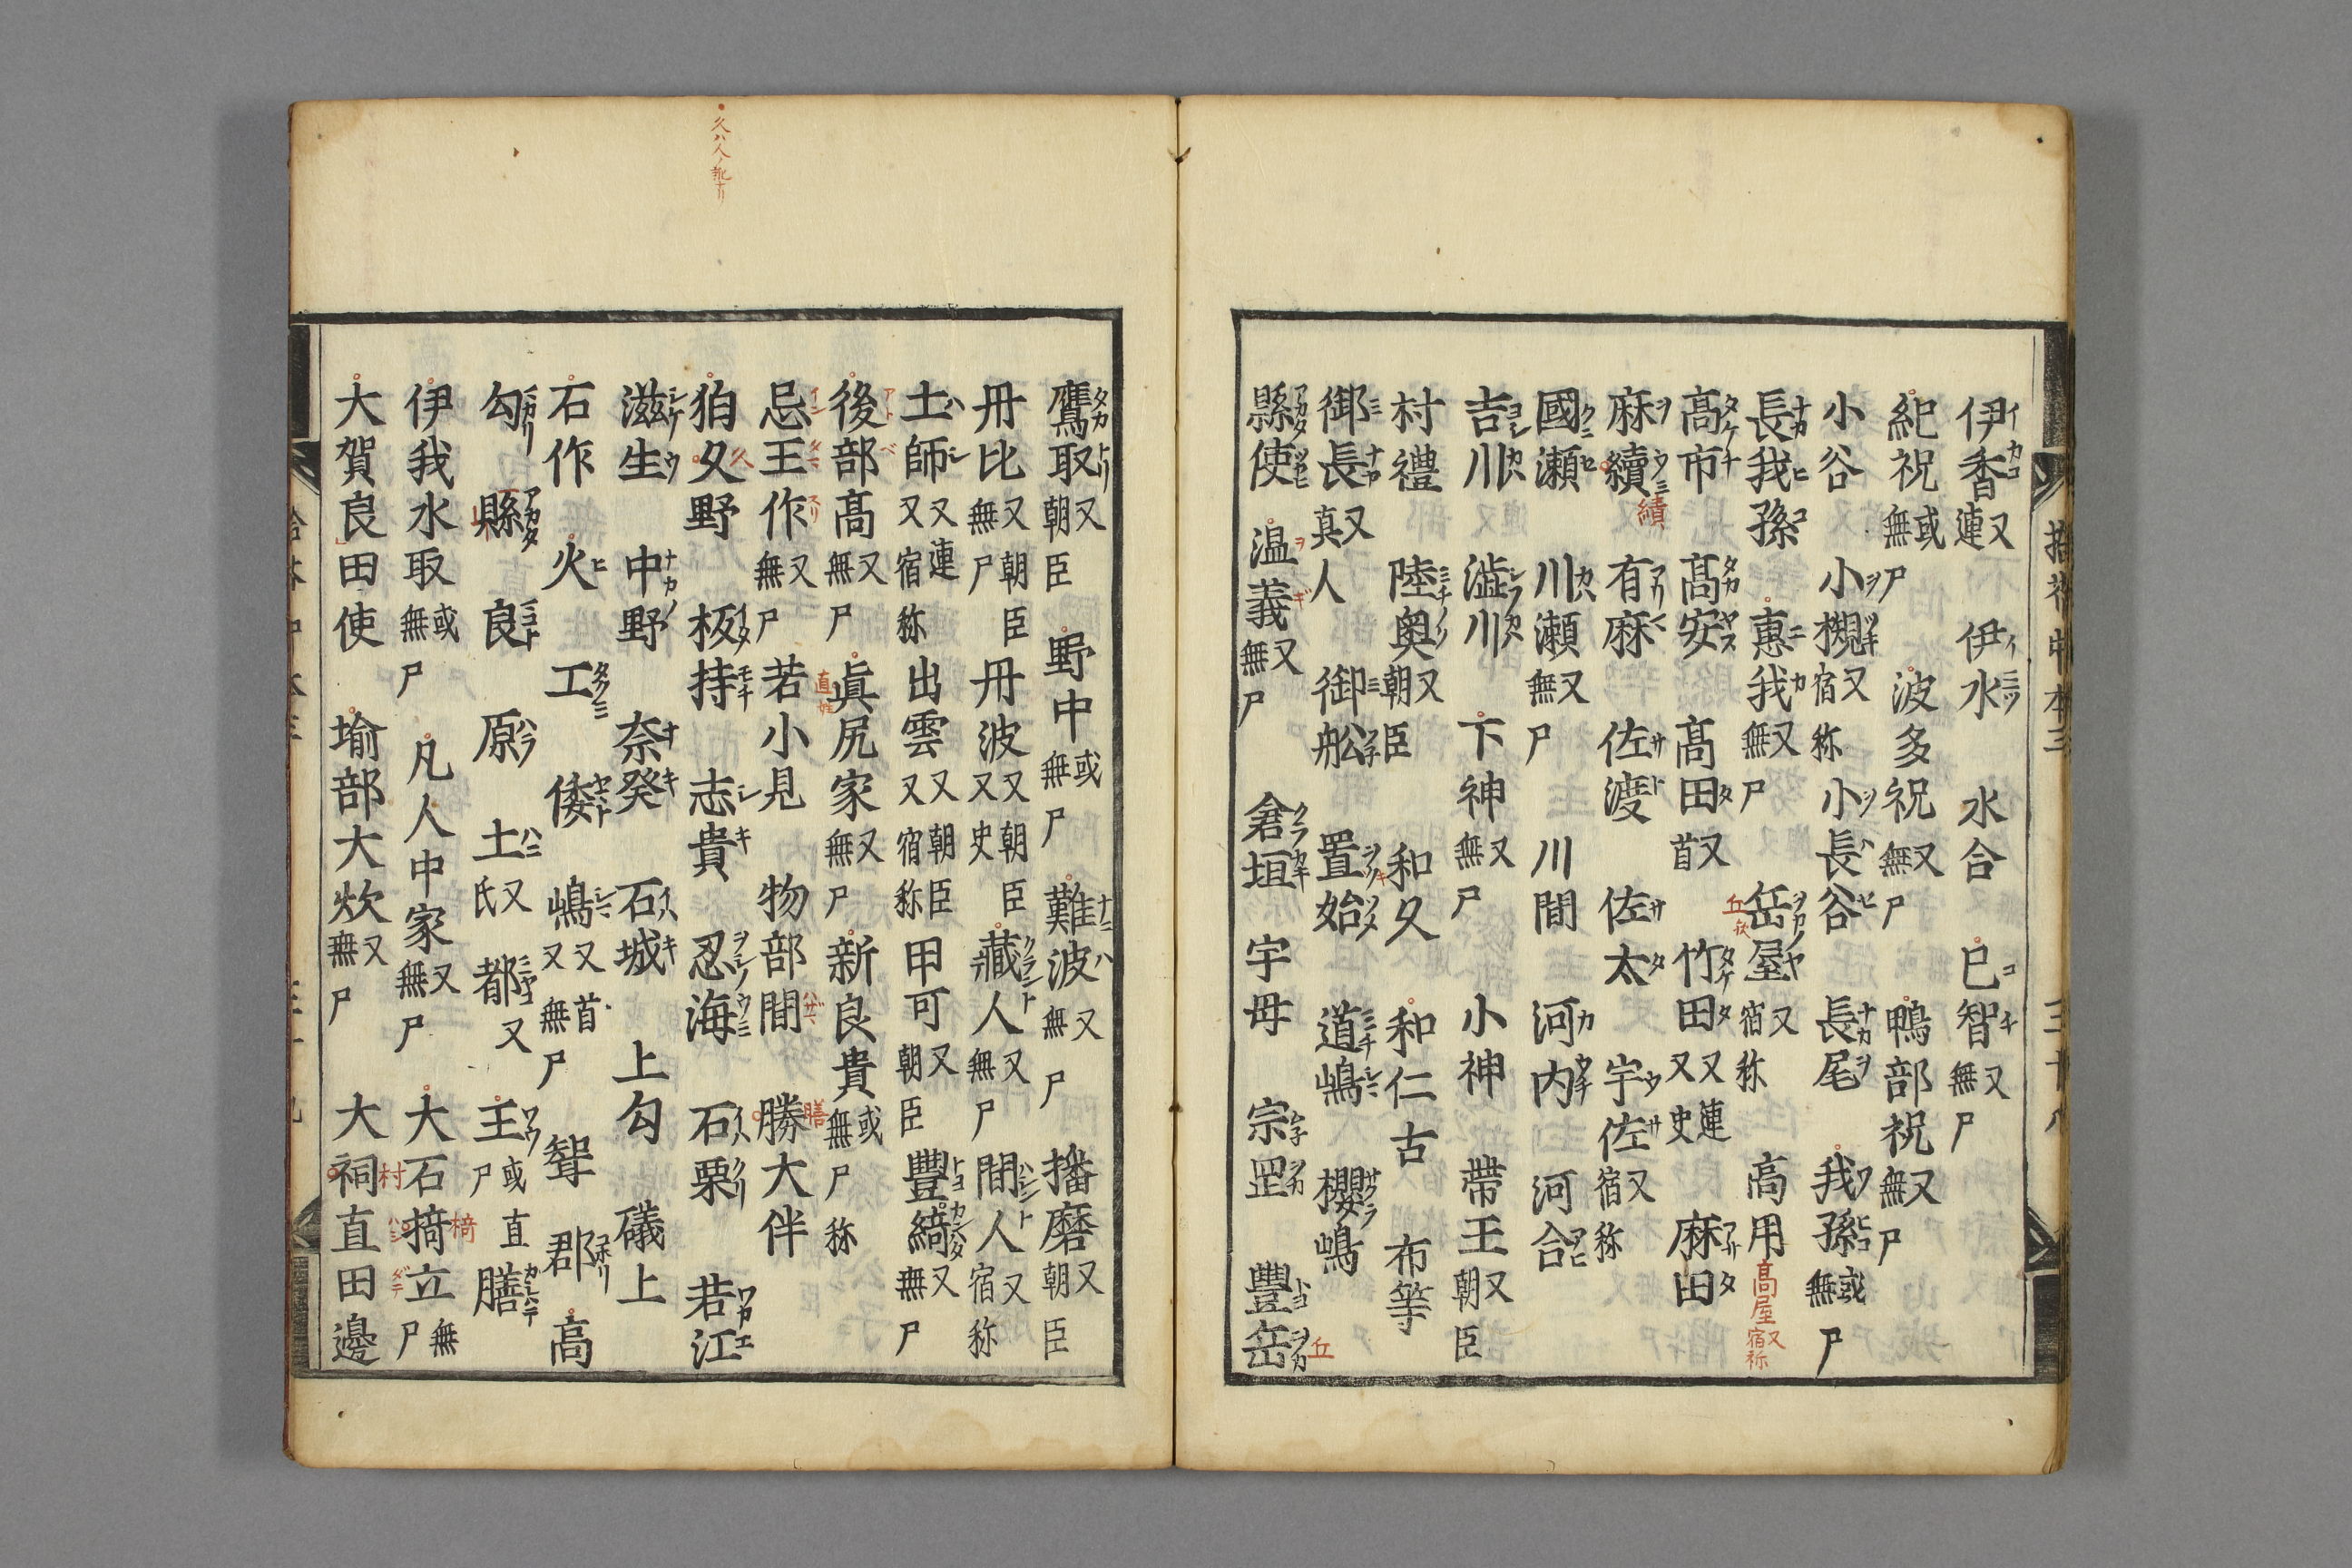 伊香又連 伊水 水合 巳智又無尸
紀祝或無尸 波多祝又無尸 鴨部祝又無尸
小谷 小槻又宿祢 小長谷 長尾 我孫或無尸
長我孫 惠我又無尸 岳屋又宿祢 高用 高屋又宿祢
髙市 髙安 髙田又首 竹田又連又史 麻田
麻續 有麻 佐渡 佐太 宇佐又宿祢
國瀬 川瀬又無尸 川間 河内 河合
吉川 澁川 下神又無尸 小神 帶王又朝臣
村禮 陸奥又朝臣 和久 和仁古 布等
御長又真人 御舩 置始 道嶋 櫻嶋
縣使 温義又無尸 倉垣 宇母 宗罡 豐岳
拾芥中本三 三十八
久ハ人ノ訛ナリ
鷹取又朝臣 野中或無尸 難波又無尸 播磨又朝臣
丹比又朝臣無尸 丹波又朝臣又史 藏人又無尸 間人又宿祢
土師又連又宿祢 出雲又朝臣又宿祢 甲可又朝臣 豐綺又無尸
後部髙又無尸 眞尻家又無尸 新良貴或無尸称
忌王作又無尸 若小見 物部間 勝大伴
狛久野 板持 志貴 忍海 石栗 若江
滋生 中野 奈癸 石城 上勾 礒上
石作 火 工 倭 嶋又首又無尸 髶 郡 高
勾 縣 良 原 土又氏 都又 王或直尸 膳
伊我水取或無尸 凡人中家又無尸 大石掎立無尸
大賀良田使 堬部大炊又無尸 大祠直田邊